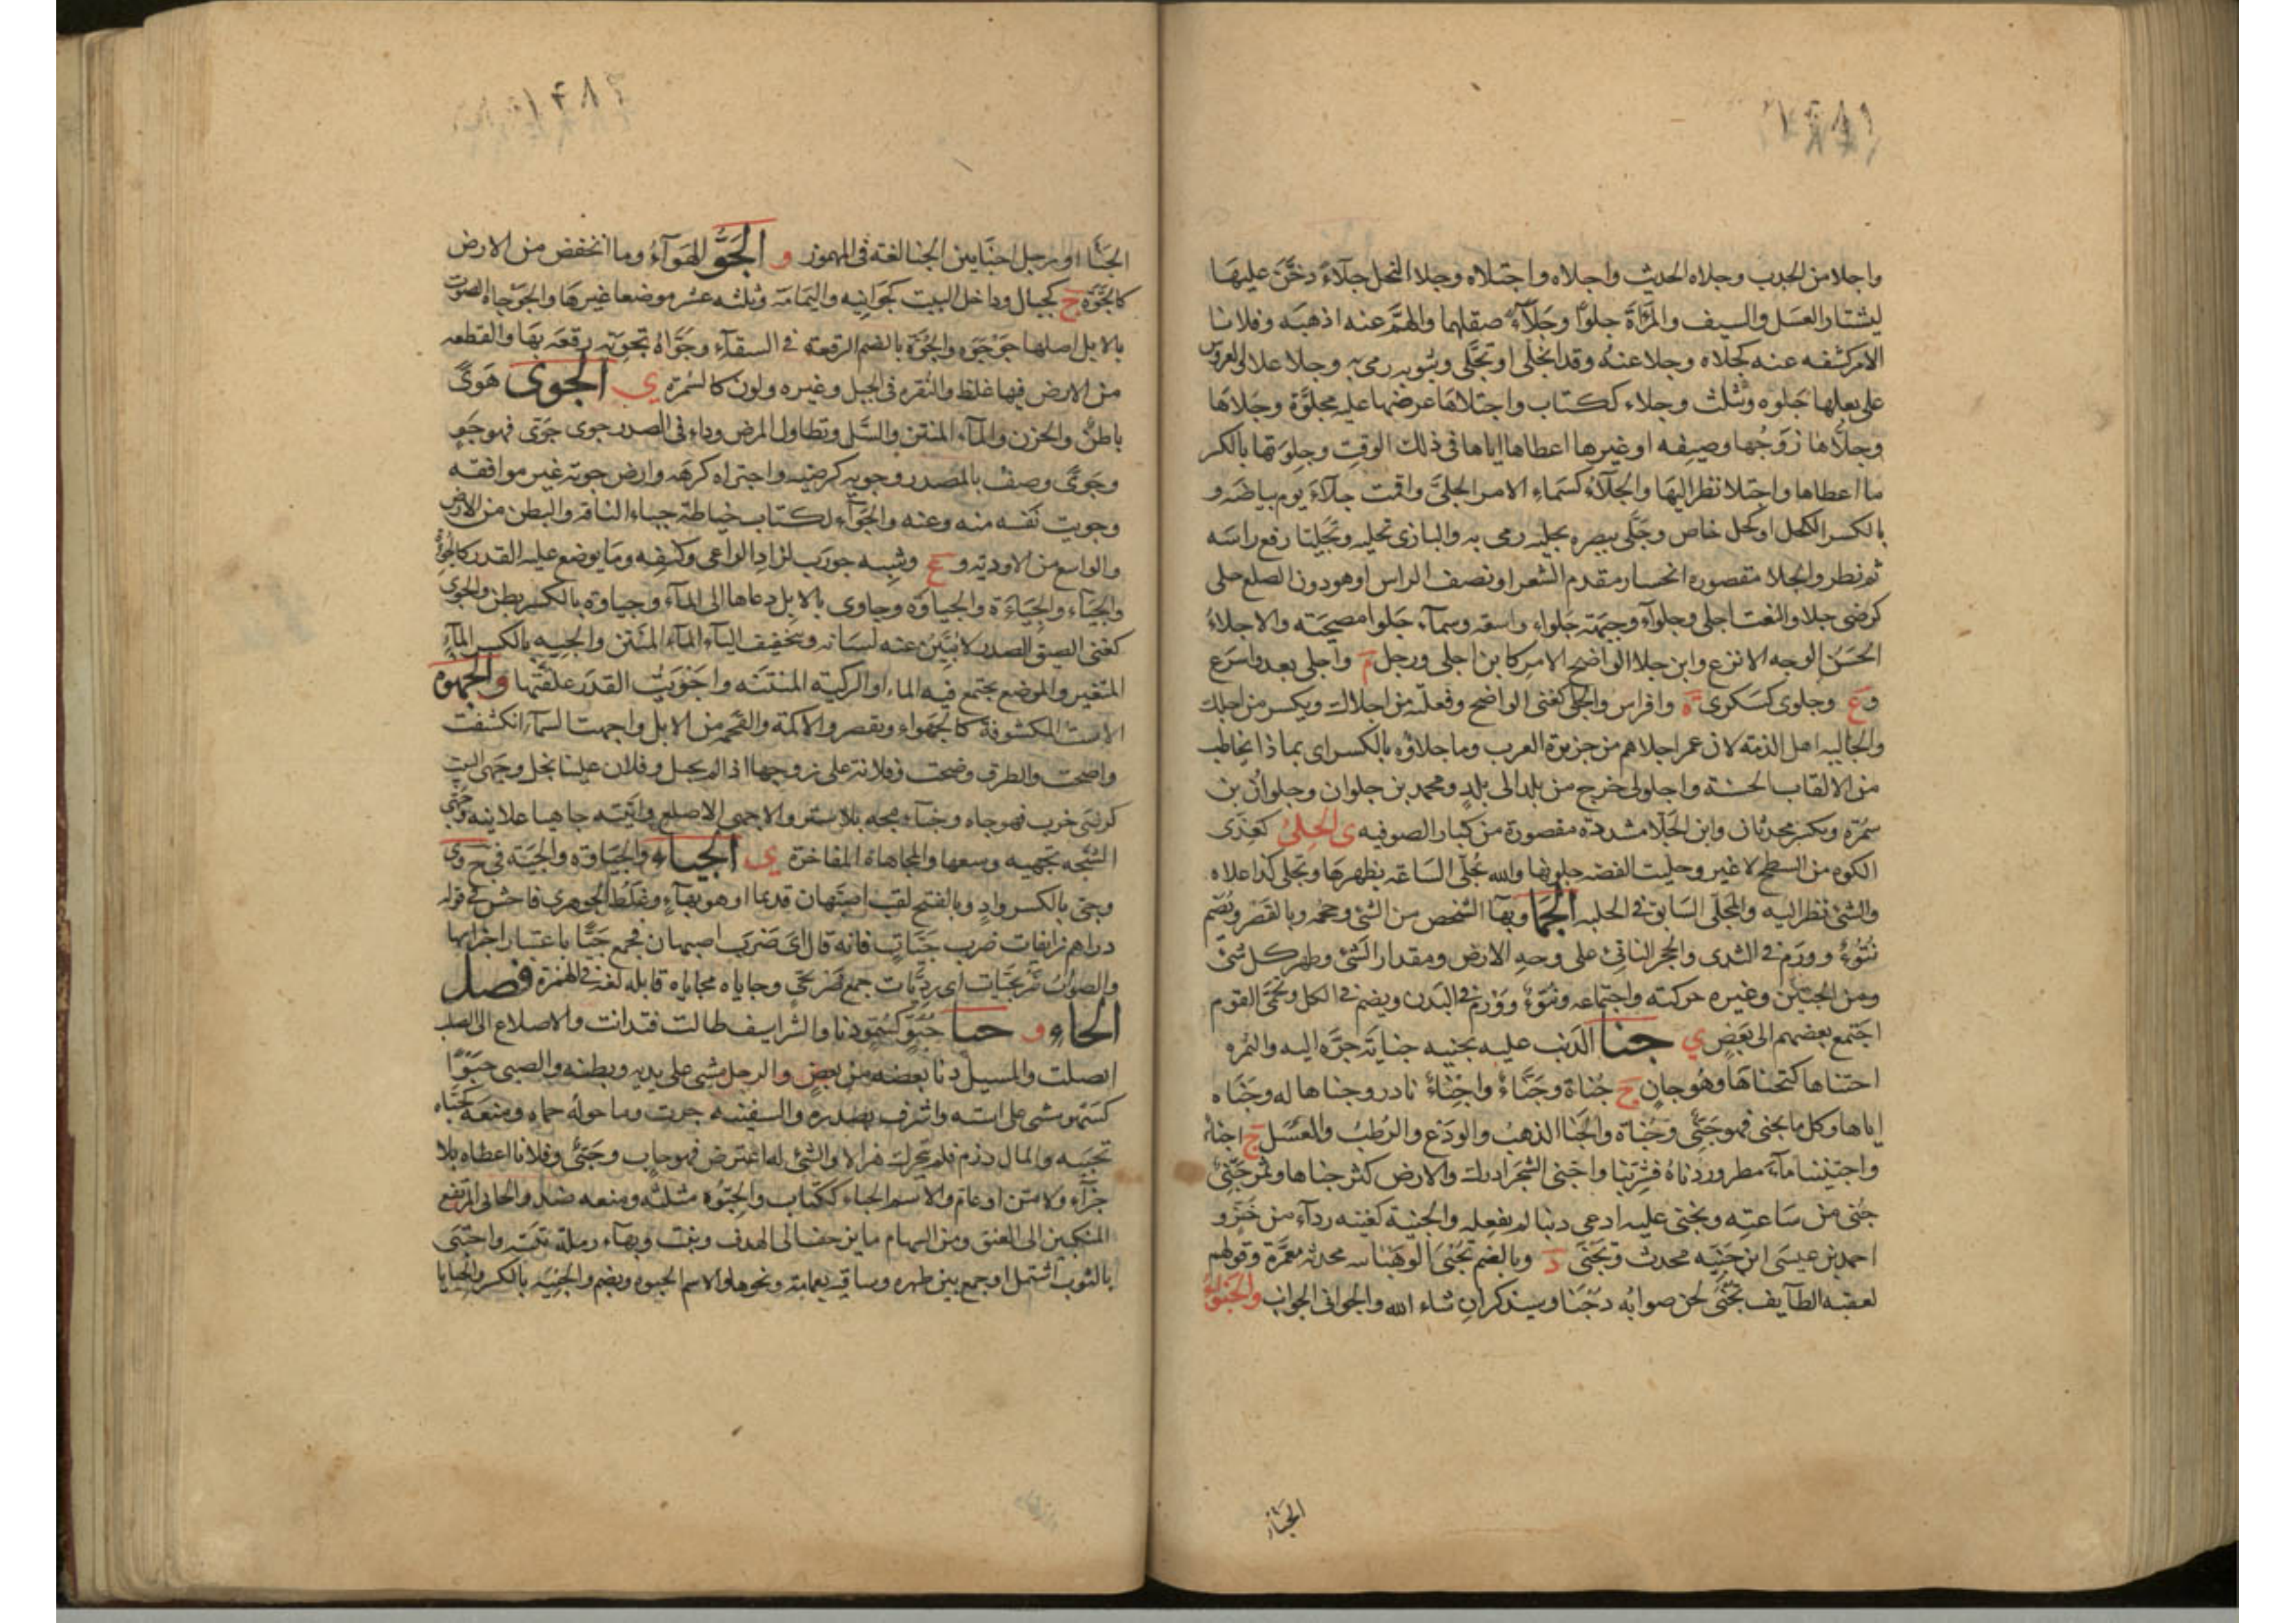 واجلا من الجدب وجلاه الحديث واجلاه واجتلاه وجلا النحل جلاءً دخَّن عليها
ليشتار العسل والسيف والمرآة جلوًا وجلاءً صقلهما والهمّ عنه اذهبه وفلانا
الامر كشفه عنه كجلاه وجلا عنه وقد انجلى وتجلى وبثوبه رمى به وجلا علا والعروس
على بعلها جلوه وتثلث وجلاء ككتاب واجتلاها عرضها عليه مجلوّة وجلاها
وجلّاها زوجُها وصيفه او غيرها اعطاها اياها في ذلك الوقت وجِلوتها بالكسر
ما اعطاها واجتلا نظر اليها والجلاءُ كسماء الامر الجليّ واقمت جلاءَ يوم بياضه و
بالكسر الكحل او كحل خاص وجَلّى ببصره تجلية رمى به والبازى تجليه وتجليًا رفع راسه
ثم نظر والجلا مقصورة انحسار مقدم الشعر او نصف الراس او هو دون الصلع جلى
كرضى جلا والنعت اجلى وجلوآء وجبهة جلواء واسعه وسمآء جلوا مصحية والاجلا
الحسن الوجه الانزع وابن جلا الواضح الامر كابن اجلى ورجل م واجلى يعد واسرع
و ع وجلوى كسكرى ة وافراس والجلى كغنى الواضح وفعلته من اجلاك ويكسر من اجلك
والجاليه اهل الذمه لان عمر اجلاهم من جزيرة العرب وما جلاؤه بالكسر اى بماذا يخاطب
من الالقاب الحسنة واجلولى خرج من بلد الى بلدٍ ومحمد بن جلوان وجلوانُ بن
سمُرة ويكسر محدثان وابن الجَلّا مشددة مقصورة من كبار الصوفيه ى الجِلىُ كعِذَى
الكوه من السطح لا غير وجليت الفضه جلوتها والله يُجلّى الساعة يظهرها وتجلى كذا علاه
والشئ نظر اليه والمجلّى السابق في الحلبه الجَمَا وبهآ الشخص من الشئ وحجمه وبالقصر ويُضم
نُتُوءٌ وورَم في الثدى والحجر الناتئ على وجه الارض ومقدار الشئ وظهر كل شئ
ومن الجنين وغيره حركته واجتماعه ونتوءٌ وورم في البدن ويضم في الكل وتجمّى القوم
اجتمع بعضهم الى بعضٍ ي جنا الذنب عليه يجنيه جناية جرّه اليه والثمره
اجتناها كتجناها وهو جانٍ ج جُناة وجُنَّاءٌ واجناءٌ نادر وجناها له وجنّاه
اياها وكل ما يجنى فهو جَنًى وجَناة والجنا الذهب والودَع والرُطب والعسل ج اجناء
واجتنينا مآء مطر وردناه فشربنا واجنى الشجر ادرك والارض كثر جناها وثمر جَنِىٌ
جُنى من ساعته وتجنى عليه ادعى ذنبا لم يفعله والجنية كغنيه ردآء من خَزّ و
احمد بن عيسى ابن جَنِيّه محدث وتَجنَى د وبالضم تُجْنَى الوهبانيه محدثة معمّرة وقولهم
لعقبه الطآيف تجنى لحن صوابه دجنا وسيذكر ان شاء الله والجوانى الجوانب والجَنوَاءُ
الجنا
الجَنَّا او رجل اجنّا بين الجنا لغة في المهموز و الجَوُّ الهوآءُ وما انخفض من الارض
كالجَوّة ج كجبال وداخل البيت كجوانيه واليمامة وثلثه عشر موضعا غيرها والجَوْجاة الصوت
بالابل اصلها جوجوه والجُوّة بالضم الرقعة في السقآء وجوّاه تجوية رقعه بها والقطعه
من الارض فيها غلظ والنُقرة في الجبل وغيره ولون كالسُمرة ي الجوىَ هَوىً
باطنٌ والحزن والمآء المنتن والسّل وتطاول المرض وداء في الصدر جوى جَوًى فهو جَوٍ
وجَوًى وصف بالمصدر وجويه كرضيه واجتواه كرهه وارض جوية غير موافقه
وجويت نفسه منه وعنه والجوآء ككتاب خياطة حياء الناقه والبطن من الارض
والواسع من الاودية و ع وشبه جورب لزاد الراعى وكنفه وما يوضع عليه القدر
والجيَاء والجِيَاءة والجياوة وجاوى بالابل دعاها الى المآء وجياوة بالكسر بطن والجوى
كغنى الضيق الصدر لا يبيّن عنه لسانه وبتخفيف اليآء المآء المنتن والجيه بالكسر المآء
المتغير والموضع يجتمع فيه الماء او الركية المنتنه واجْوَيْتُ القدر علقتها و الجُهوة
الاست المكشوفة كالجهواء ويقصر والاكمة والقحمه من الابل واجهت السمآء انكشفت
واضحت والطرق وضحت وفلانة على زوجها اذا لم تحبل وفلان علينا بخل وجَهى البيت
كرضى خرب فهو جاهٍ وخبآء مجهٍ بلا ستر والاجهى الاصلع واتيته جاهيا علانيه وجَهّى
الشجّه تجهيه وسعها والمجاهاة المفاخرة ي الجياء والجياوة والجيَة في ج و ى
وجَىّ بالكسر وادٍ وبالفتح لقب اصبهان قديما او هو بهآء وغلط الجوهرى فاحش في قوله
دراهم زايفات ضرب جَيّاتٍ فانه قال اى ضرب اصبهان فجمع جَيًّا باعتبار اجزايها
والصوابُ ضربجيّات اى رديّات جمع ضربجىّ وجاياه مجاياه قابله لغة في الهمزة فصل
الحَاءِ و حبا حُبُوًّ كسُمُوٍّ دنا والشراسيف طالت فتدانت والاضلاع الى الصلب
اتصلت والمسيل دنا بعضه من بعض والرجل مشى على يديه وبطنه والصبى حَبْوًا
كسَهْو مشى على استه واشرف بصدره والسفينه جرت وما حوله حماه ومنعه كحبّاه
تحبيه والمال رزم فلم يتحرك هزالا والشئ له اعترض فهو حابٍ وحَبِىٌّ وفلانا اعطاه بلا
جزآء ولا منّ او عام والاسم الحباء ككتاب والحبوة مثلثه ومنعه ضد والحابى المرتفع
المنكبين الى العنق ومن السهام ما يزحف الى الهدف ونبت وبهآء رملة تنبته واحتبى
بالثوب اشتمل او جمع بين ظهره وساقيه بعمامة ونحوها والاسم الحبوه ويضم والحبيَه بالكسر والحبا با